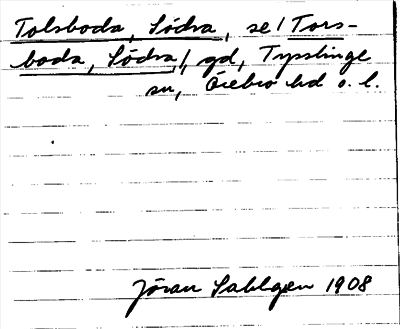 Tolsboda, Södra, se/Tors-
boda, Södra/, gd, Tysslinge
sn, Örebro hd o. l.
Jöran Sahlgren 1908